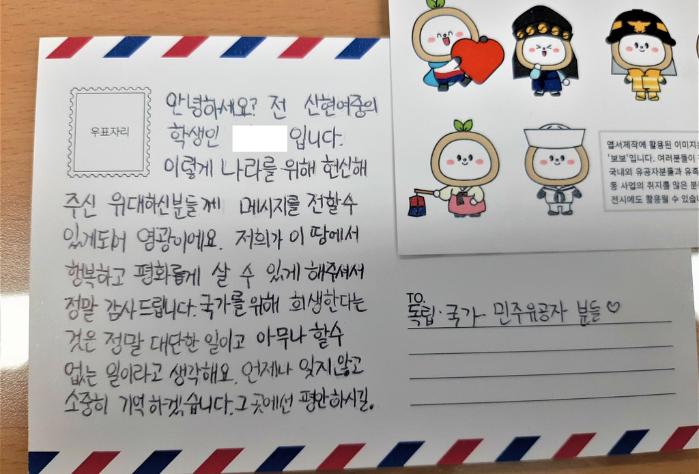 우표자리
안녕하세요? 전 산현여중의
학생인 입니다.
이렇게 나라를 위해 헌신해
주신 위대하신분들께 메시지를 전할수
있게되어 영광이에요. 저희가 이 땅에서
행복하고 평화롭게 살 수 있게 해주셔서
정말 감사드립니다. 국가를 위해 희생한다는
것은 정말 대단한 일이고 아무나 할수
없는 일이라고 생각해요. 언제나 잊지않고
소중히 기억하겠습니다. 그곳에선 평안하시길.
TO.
독립·국가·민주유공자 분들♡
엽서제작에 활용된 이미지는
'보보'입니다. 여러분들이
국내외 유공자분들과 유족
등 사업의 취지를 많은 분
전시에도 활용될 수 있습니